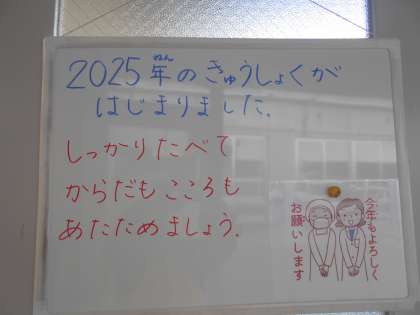 2025年のきゅうしょくが
ねん
はじまりました.
しっかりたべて
からだもこころも
あたためましょう.
今年もよろしく
お願いします